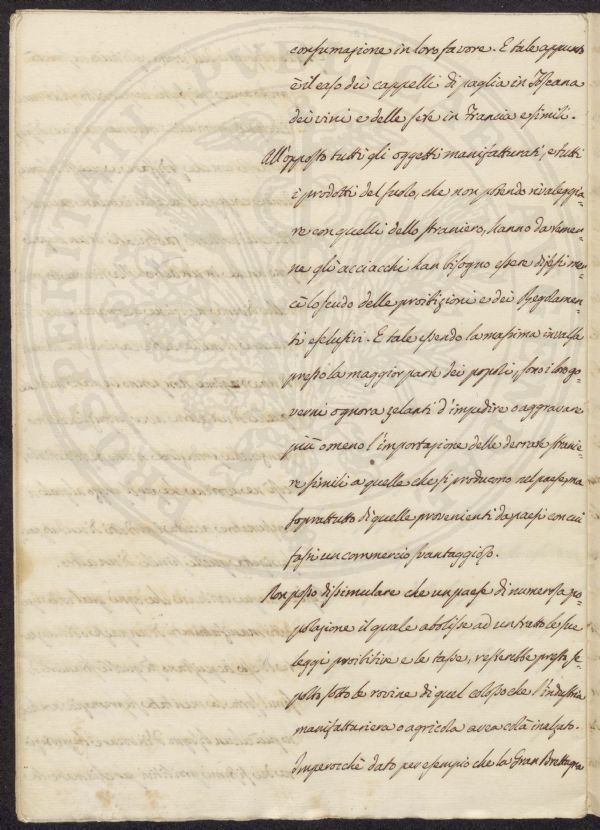 consumazione in loro favore. E tale appunto
è il caso dei cappelli di paglia in Toscana
dei vini e delle sete in Francia e simili.
All'opposto tutti gli oggetti manifatturati, e tutti
i prodotti del suolo, che non potendo rivaleggia-
re con quelli dello straniero, hanno da temer-
ne gli acciacchi han bisogno essere difesi me-
cè lo scudo delle proibizioni e dei Regolamen-
ti esclusivi. E tale essendo la massima invalsa
presso la maggior parte dei popoli, sono i lor go-
verni ognora zelanti d'impedire o aggravare
più o meno l'importazione delle derrate stranie-
re simili a quelle che si producono nel paese, ma
soprattutto di quelle provenienti da paesi con cui
fassi un commercio svantaggioso.
Non posso dissimulare che un paese di numerosa po-
polazione il quale abolisse ad un tratto le sue
leggi proibitive e le tasse, resterebbe presto se-
polto sotto le rovine di quel colosso che l'industria
manifatturiera o agricola avea colà inalzato.
Imperocchè dato per esempio che la Gran Brettagna
PROSPERITATI PUBLICAE